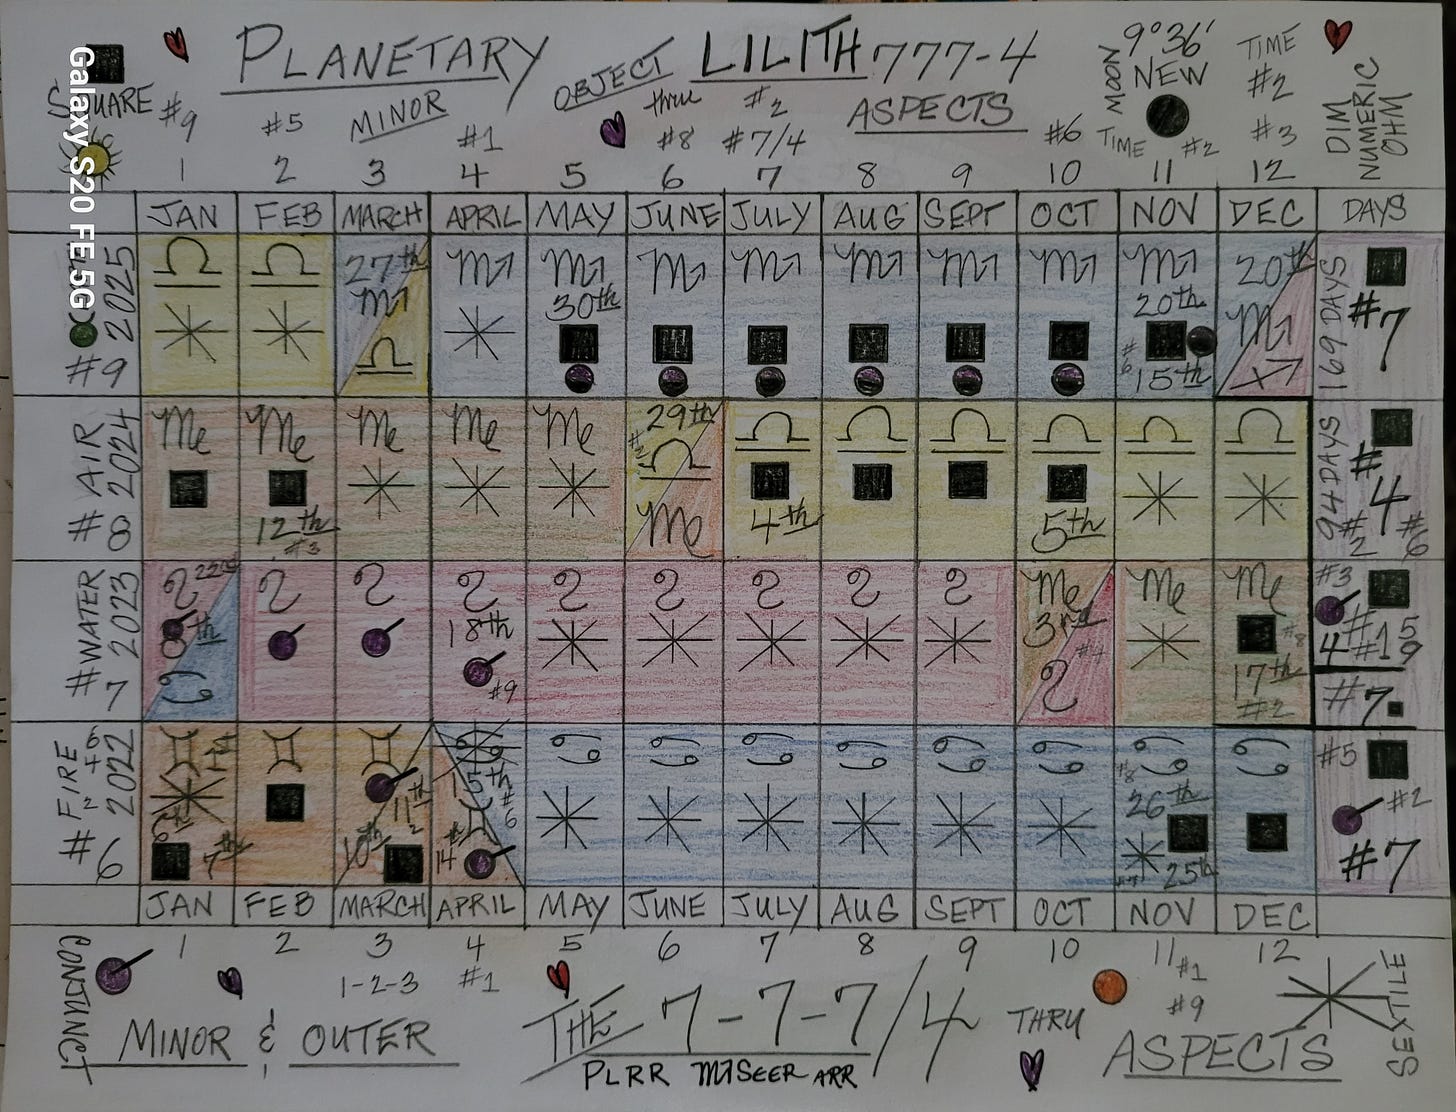 Galaxy S20 FE 5G
PLANETARY OBJECT LILITH 777-4
MOON 9°36'
NEW
TIME
#2
SQUARE #9 #5 MINOR #1 thru #2 ASPECTS
#8 #7/4 #6 TIME #2 #3
DIM NUMERIC OHM
1 2 3 4 5 6 7 8 9 10 11 12
JAN FEB MARCH APRIL MAY JUNE JULY AUG SEPT OCT NOV DEC DAYS
2025
#9
♎ ♎ 27th ♏ ♏ ♏ ♏ ♏ ♏ ♏ ♏ 20th
♎ 30th 20th ♏
#6 15th ♐
169 DAYS #7
AIR
#8 2024
♍ ♍ ♍ ♍ ♍ 29th ♎ ♎ ♎ ♎ ♎ ♎
♎
12th #3 ♍ 4th 5th
94 DAYS #4
#2 #6
WATER
#7 2023
♌ 22nd ♌ ♌ ♌ ♌ ♌ ♌ ♌ ♌ ♍ ♍ ♍
8th 18th 3rd #4 #8
♋ #9 ♌ 17th
#2
#3
4 #19 5
#7
FIRE
#6 2022
♊ ♊ ♊ ♋ ♋ ♋ ♋ ♋ ♋ ♋ ♋
6th 11th 15th #6 #8 26th
7th 10th 14th 25th
#5
#2
#7
JAN FEB MARCH APRIL MAY JUNE JULY AUG SEPT OCT NOV DEC
1 2 3 4 5 6 7 8 9 10 11 12
CONJUNCT 1-2-3 #1 #1
#9
MINOR & OUTER THE 7-7-7/4 THRU ASPECTS
SEXTILE
PLRR M SEER ARR